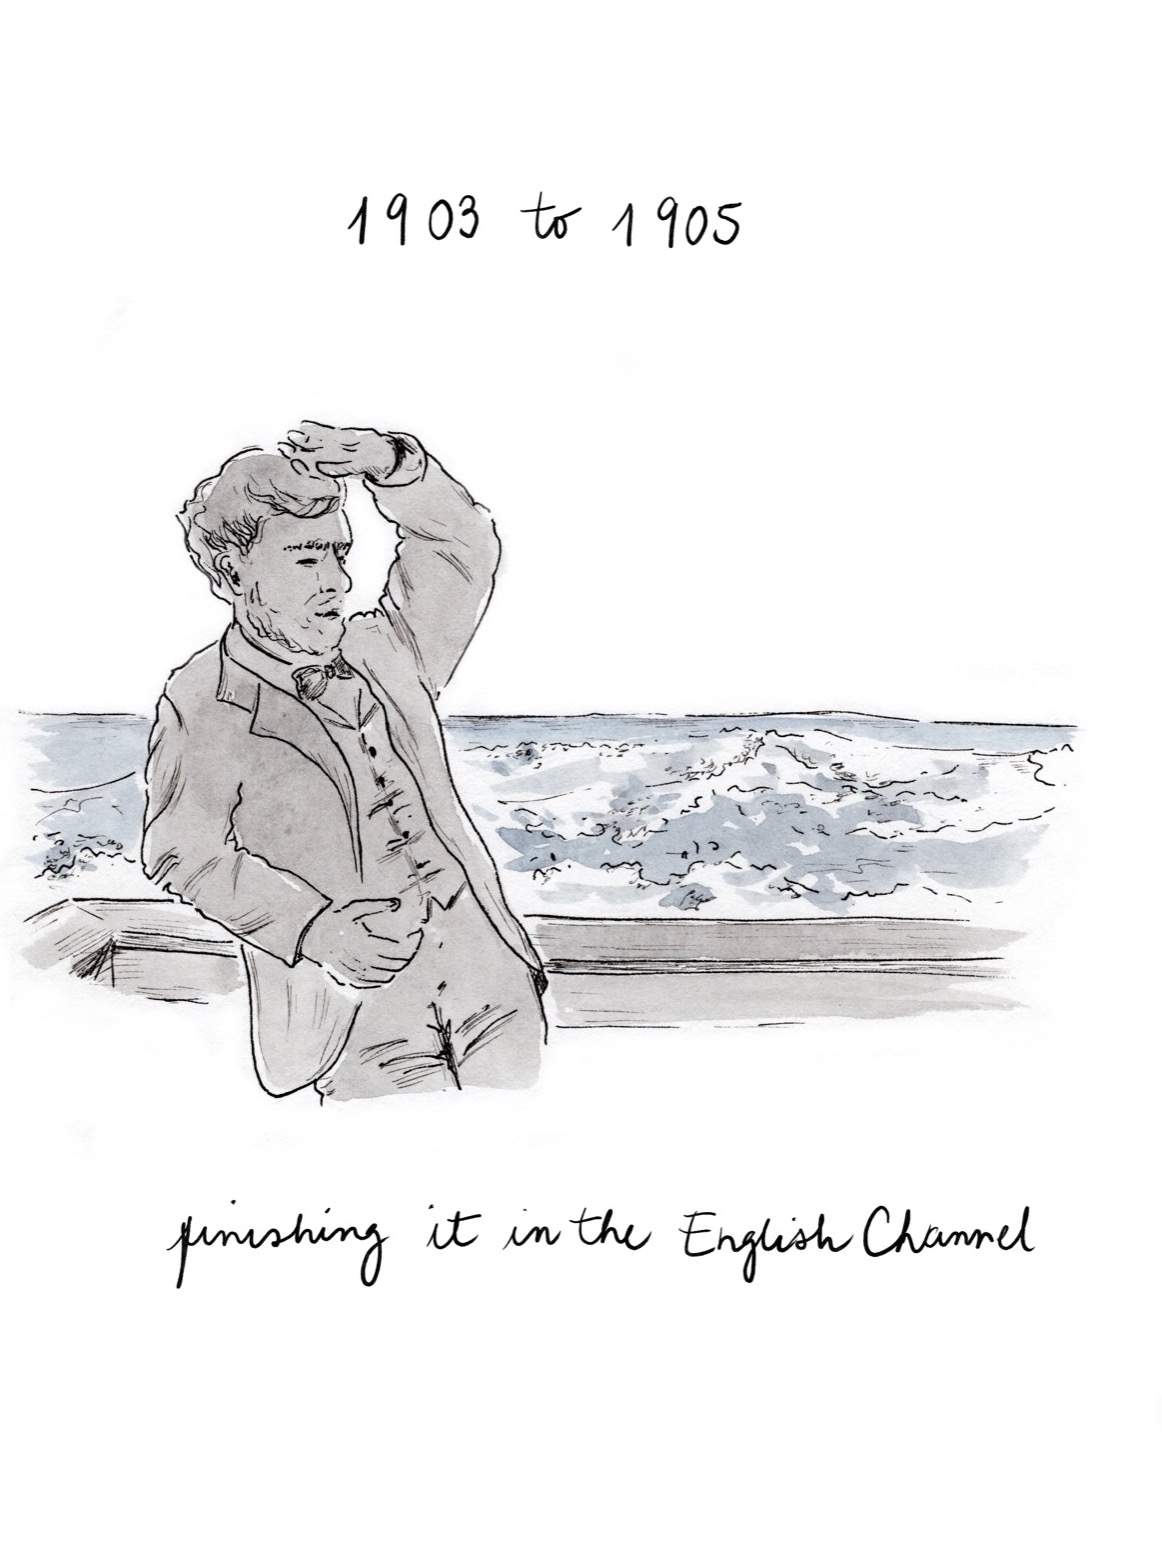 1903 to 1905
finishing it in the English Channel